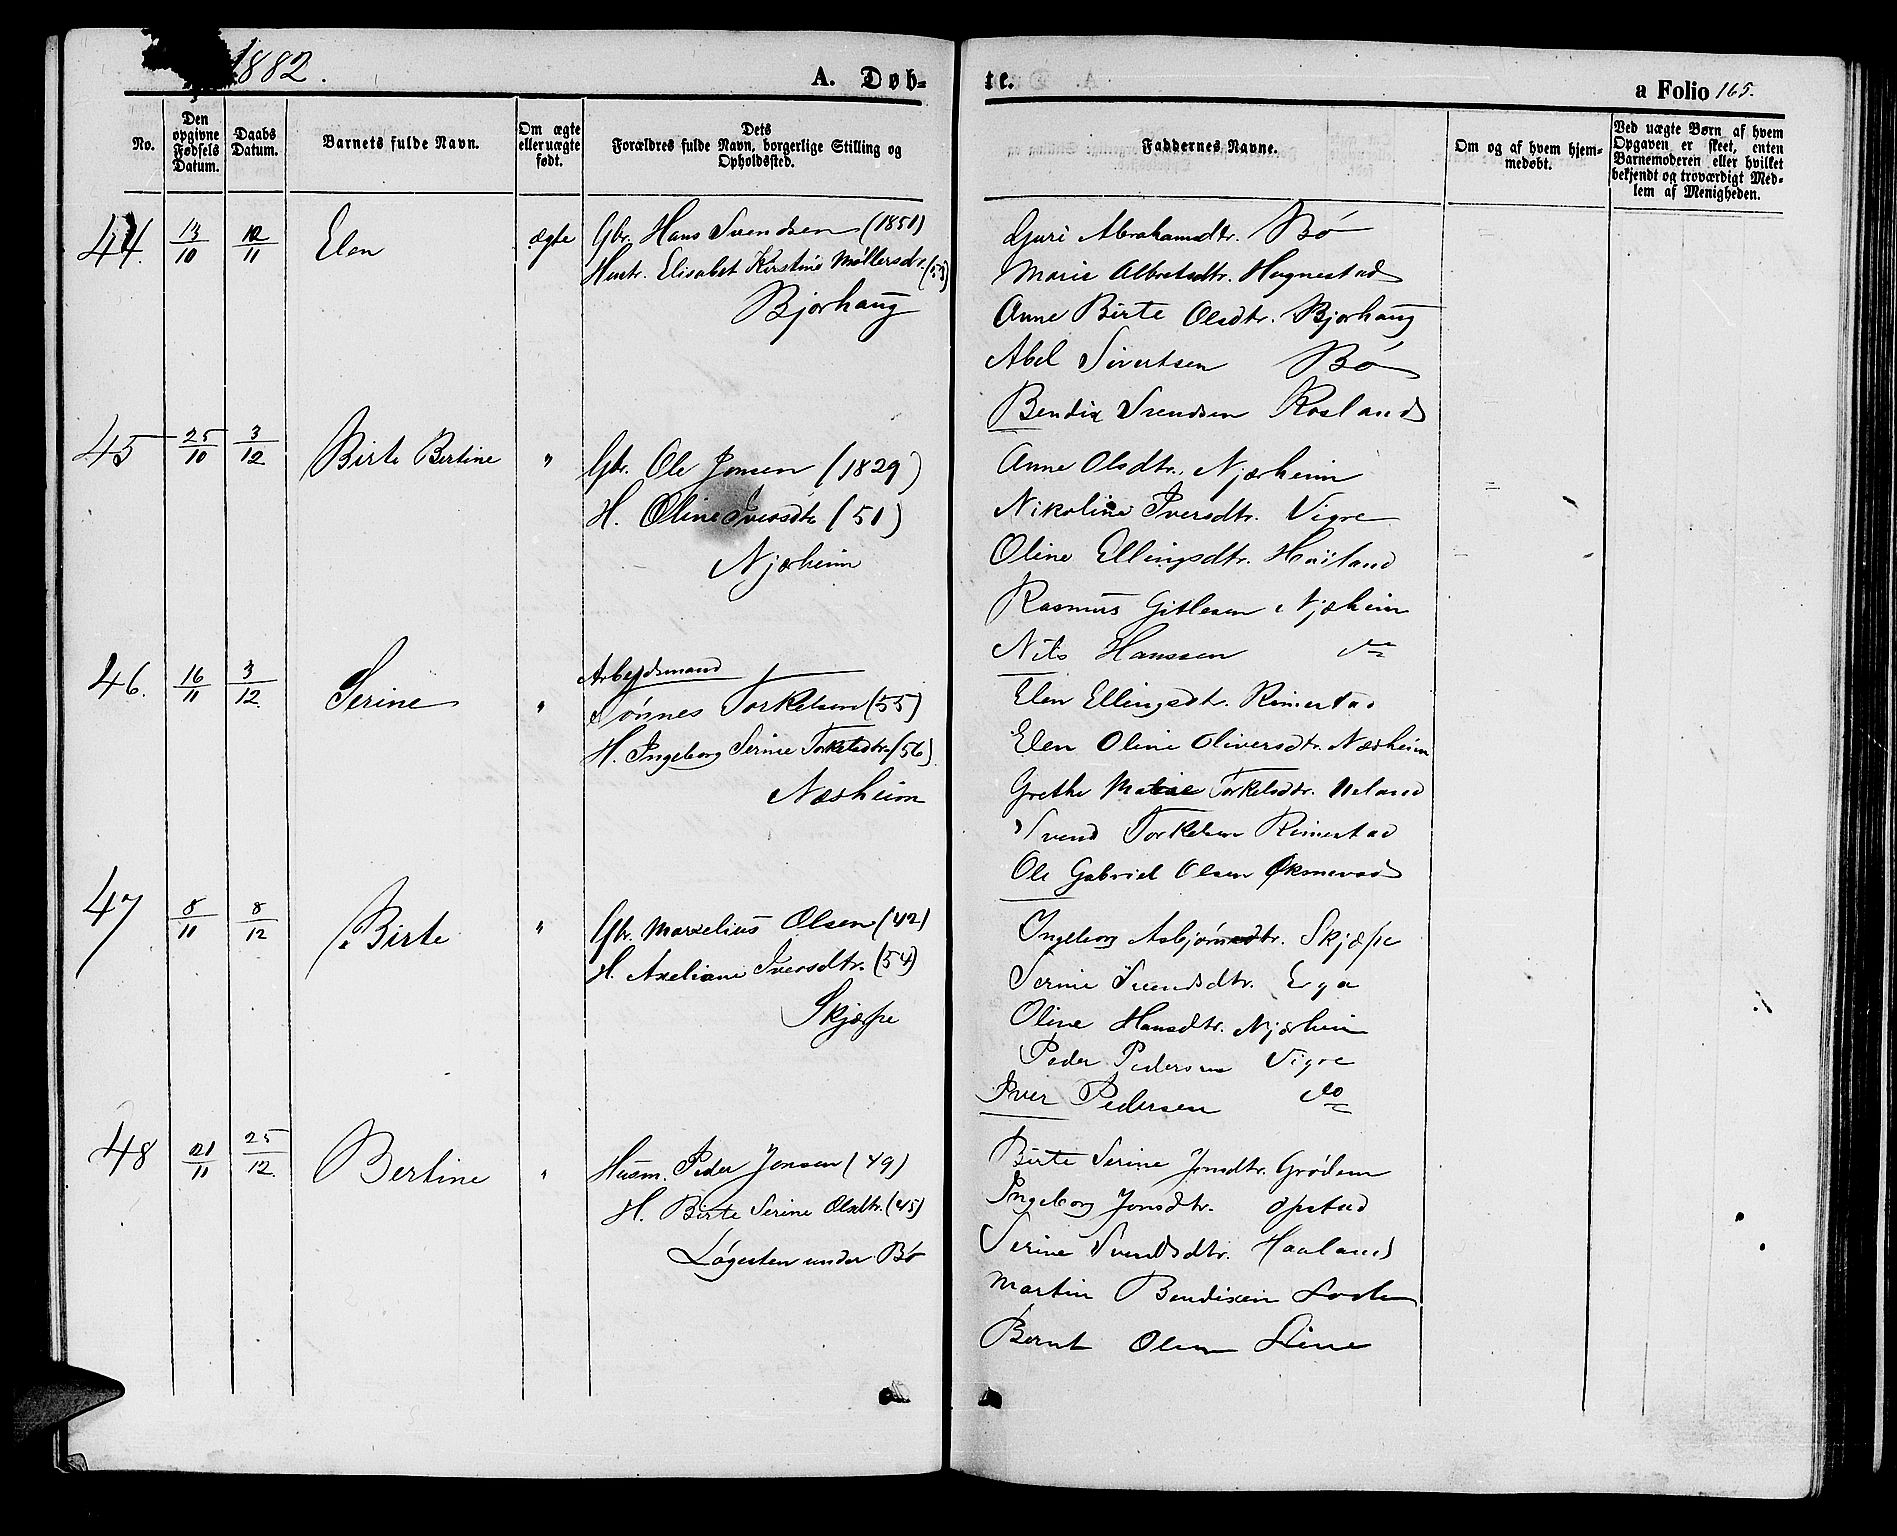 1882.
A. Døb-
te.
a Folio 165.
No.
Den opgivne Fødsels Datum.
Daabs Datum.
Barnets fulde Navn.
Om ægte eller uægte født.
Dets Forældres fulde Navn, borgerlige Stilling og Opholdssted.
Faddernes Navne.
Om og af hvem hjemmedøbt.
Ved uægte Børn af hvem Opgaven er skeet, enten Barnemoderen eller hvilket bekjendt og troværdigt Medlem af Menigheden.
44. 13/10 12/11 Elen ægte Gbr. Hans Svendsen (1851)
Hustr. Elisabet Kirstine Møllersdtr. (53)
Bjorhaug
Guri Abrahamsdtr. Bø
Marie Albretsdtr. Hognestad
Anne Birte Olsdtr. Bjorhaug
Abel Sivertsen Bø
Bendix Svendsen Rosland
45 25/10 3/12 Birte Bertine " Gbr. Ole Jonsen (1829)
H. Oline Iversdtr (51)
Njærheim
Anne Olsdtr. Njærheim
Nikoline Iversdtr. Vigre
Oline Ellingsdtr. Høiland
Rasmus Gitlesen Njæheim
Nils Hanssen do
46. 16/11 3/12. Serine " Arbejdsmand
Tønnes Torkelsen (55)
H. Ingeborg Serine Torkelsdtr. (56)
Næsheim
Elen Ellingsdtr. Rimestad
Elen Oline Oliversdtr. Næsheim
Grethe Malene Torkelsdtr. Ueland
Svend Torkelsen Rimestad
Ole Gabriel Olsen Øksnevad
47 8/11 8/12 Birte " Gbr. Marselius Olsen (42)
H. Axeliane Iversdtr. (54)
Skjæpe
Ingeborg Asbjørnsdtr. Skjæpe
Serine Svendsdtr. Erga
Oline Hansdtr. Njærheim
Peder Pedersen Vigre
Iver Pedersen do
48 21/11 25/12. Bertine " Husm. Peder Jonsen (49)
H. Birte Serine Olsdtr. (45)
Løgesten under Bø
Birte Serine Jonsdtr. Grødem
Ingeborg Jonsdtr. Opstad
Serine Svendsdtr. Haaland
Martin Bendixen
Bernt Olsen Line